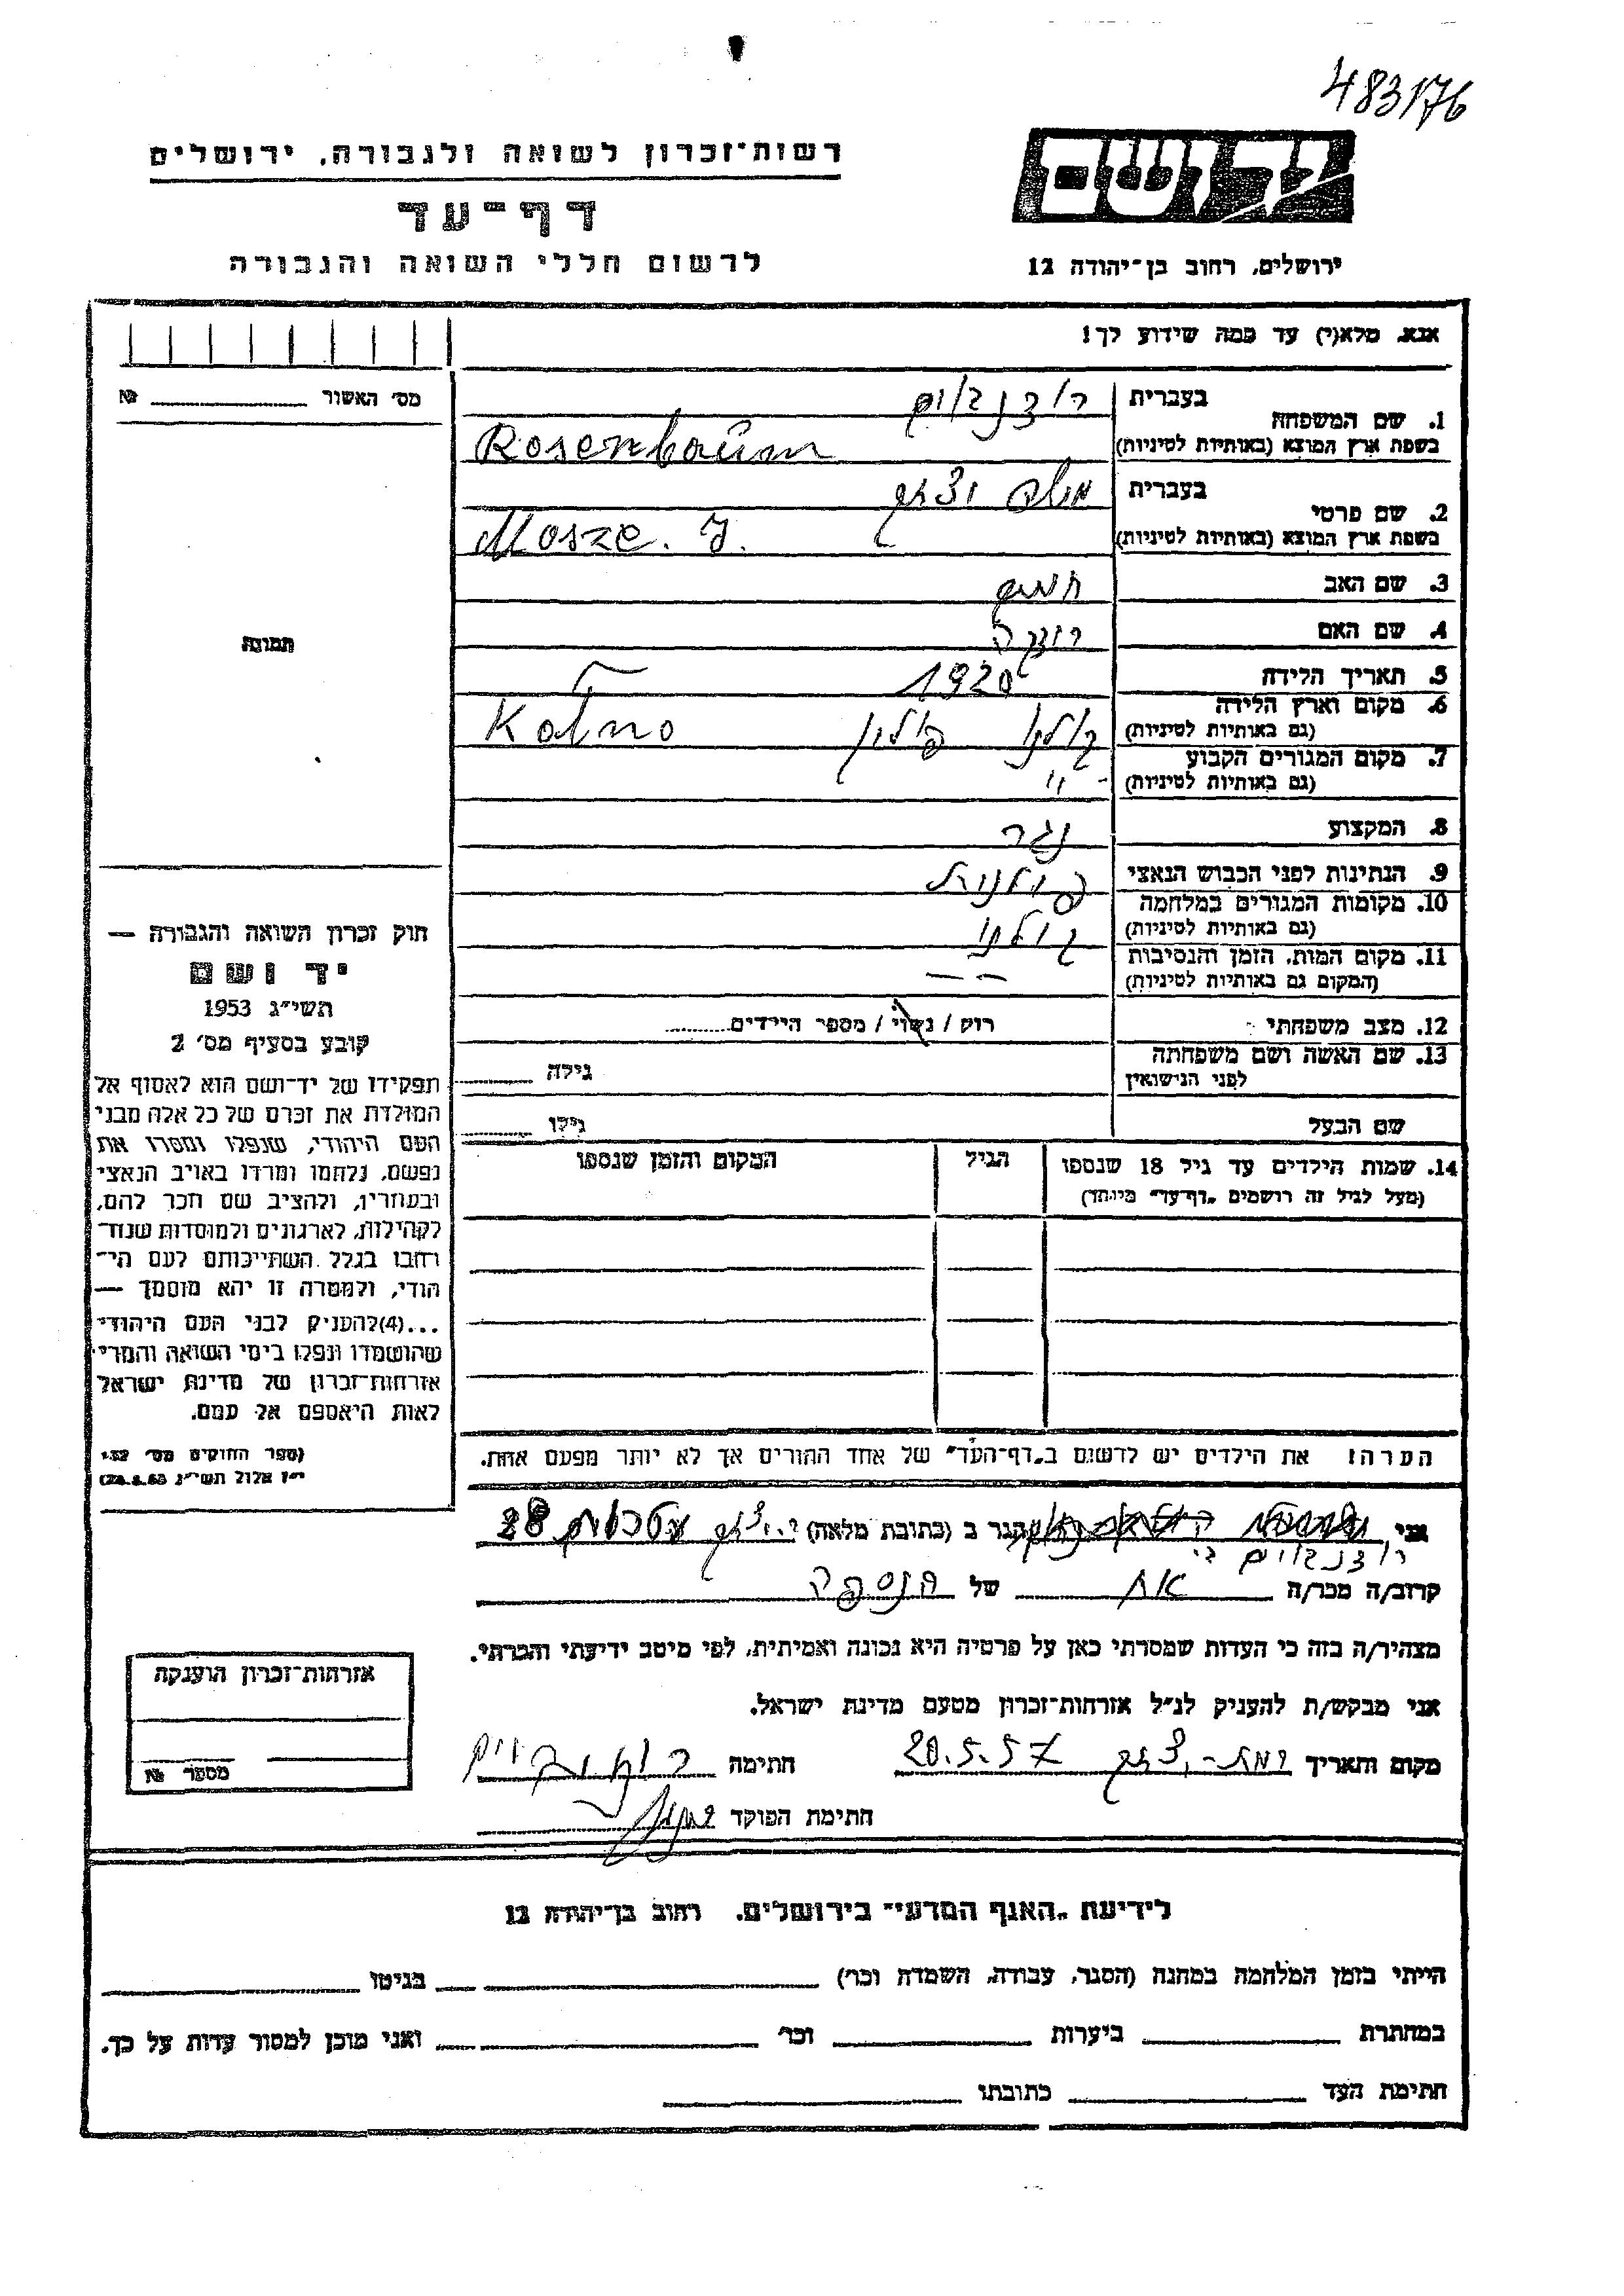 483176
רשות־זכרון לשואה ולגבורה, ירושלים
דף־עד
לרשום חללי השואה והגבורה
יד ושם
ירושלים, רחוב בן־יהודה 12
אנא, מלא(י) עד כמה שידוע לך!
מס׳ האשור № 
1. שם המשפחה בעברית רוזנבוים
בשפת ארץ המוצא (באותיות לטיניות) Rosenbaum
2. שם פרטי בעברית משה יוסף
בשפת ארץ המוצא (באותיות לטיניות) Mosze. J.
3. שם האב
4. שם האם
5. תאריך הלידה 1920
6. מקום וארץ הלידה (גם באותיות לטיניות) קולנו פולין Kolno
7. מקום המגורים הקבוע (גם באותיות לטיניות) - " -
8. המקצוע נגר
9. הנתינות לפני הכבוש הנאצי פולנית
10. מקומות המגורים במלחמה (גם באותיות לטיניות) קולנו
11. מקום המות, הזמן והנסיבות (המקום גם באותיות לטיניות) — —
12. מצב משפחתי רוק / נשוי / מספר הילדים
13. שם האשה ושם משפחתה לפני הנישואין גילה
שם הבעל גילו
14. שמות הילדים עד גיל 18 שנספו (מעל לגיל זה רושמים „דף־עד" מיוחד) הגיל המקום והזמן שנספו
הערה! את הילדים יש לרשום ב„דף־העד" של אחד ההורים אך לא יותר מפעם אחת.
תמונה
חוק זכרון השואה והגבורה —
יד ושם
תשי״ג 1953
קובע בסעיף מס׳ 2
תפקידו של יד־ושם הוא לאסוף אל
המולדת את זכרם של כל אלה מבני
העם היהודי, שנפלו ומסרו את
נפשם, נלחמו ומרדו באויב הנאצי
ובעוזריו, ולהציב שם וזכר להם,
לקהילות, לארגונים ולמוסדות שנח־
רבו בגלל השתייכותם לעם הי־
הודי, ולמטרה זו יהא מוסמך —
...(4)להעניק לבני העם היהודי
שהושמדו ונפלו בימי השואה והמרי
אזרחות־זכרון של מדינת ישראל
לאות היאספם אל עמם.
(ספר החוקים מס׳ 132
י״ז אלול תשי״ג 28.8.53)
אני, הגר ב (כתובת מלאה) 28
רוזנבוים
קרוב/ה מכר/ה אח של הנספה
מצהיר/ה בזה כי העדות שמסרתי כאן על פרטיה היא נכונה ואמיתית, לפי מיטב ידיעתי והכרתי.
אני מבקש/ת להעניק לנ״ל אזרחות־זכרון מטעם מדינת ישראל.
מקום ותאריך 20.5.57 חתימה
חתימת הפוקד
אזרחות־זכרון הוענקה
מספר №
לידיעת „האגף המדעי" בירושלים, רחוב בן־יהודה 12
הייתי בזמן המלחמה במחנה (הסגר, עבודה, השמדה וכר׳) בגיטו
במחתרת ביערות וכר׳ ואני מוכן למסור עדות על כך.
חתימת העד כתובתו